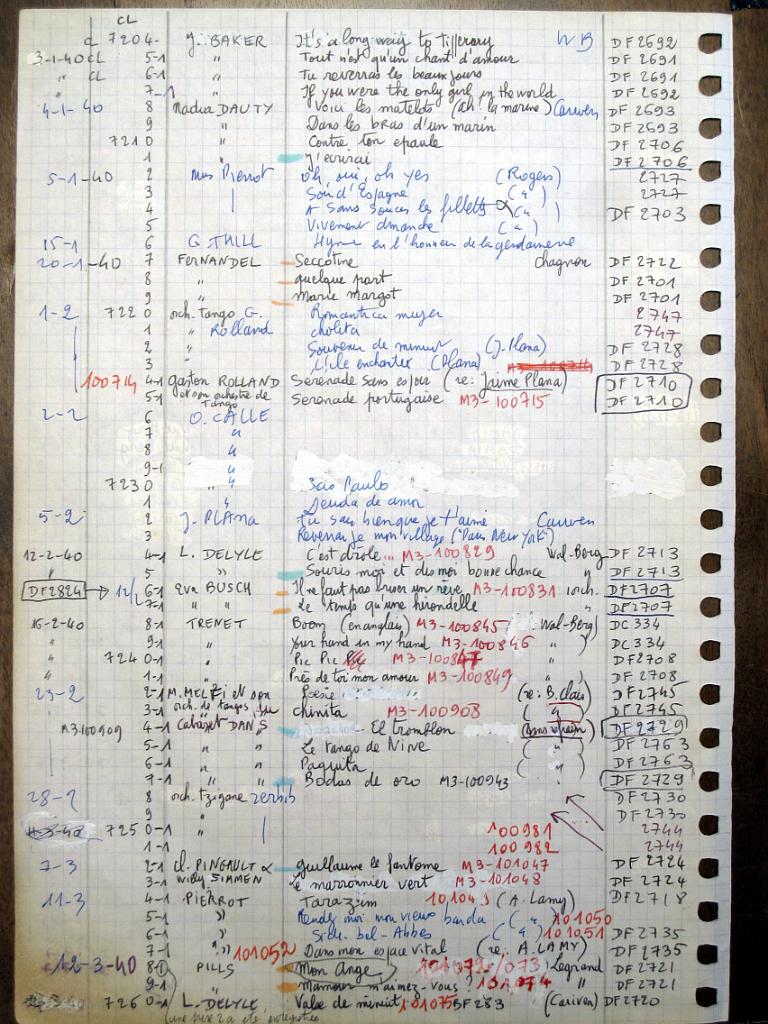 CL
CL 7204- J. BAKER It's a long way to Tipperary WB DF2692
3-1-40 CL 5-1 " Tout n'est qu'un chant d'amour DF2691
" CL 6-1 " Tu reverras les beaux jours DF2691
7-1 If you were the only girl in the world DF2692
4-1-40 8 Nadia DAUTY Voici les matelots (Ah! la marine) Cariven DF2693
9 " Dans les bras d'un marin DF2693
7210 " Contre ton épaule DF2706
1 " J'écrirai DF2706
5-1-40 2 Mus Pierrot Oh, oui, oh yes (Rogers) 2727
3 Soir d'Espagne (") 2727
4 A Sans Soucis les filletts (") DF2703
5 Vivement dimanche (")
15-1 6 G. THILL Hymne en l'honneur de la gendarmerie
20-1-40 7 FERNANDEL Seccotine Chagnon DF2722
8 " quelque part DF2701
9 " Marie Margot DF2701
1-2 7220 orch. tango G. Romantica mujer 2747
1 " Rolland cholita 2747
2 " Souvenir de (J. Plana) DF2728
3 L'île enchantée (Plana) DF2728
100714 4-1 gaston ROLLAND Serenade sans espoir (re: Jaime Plana) DF2710
5-1 et son orchestre de Tango Serenade portugaise M3-100715 DF2710
2-2 6 O. CALLE
7 "
8 "
9-1 "
7230 " Sao Paulo
1 " Deuda de amor
5-2 2 J. PLANA Tu sais bien que je t'aime Cariven
3 Reverrai-je mon village ("Paris New York")
12-2-40 4-1 L. DELYLE C'est drôle... M3-100829 Wal-Berg DF2713
" 5 " Souris moi et dis moi bonne chance " DF2713
DF2824 → 12/2 6-1 Eva BUSCH Il ne faut pas briser un rêve M3-100831 orch. DF2707
" 7-1 " Le temps qu'une hirondelle " DF2707
16-2-40 8-1 TRENET Boom (en anglais) M3-100845 (Wal-Berg) DC334
" 9-1 " Your hand in my hand M3-100846 " DC334
" 7240-1 " Pic Pic Pic M3-100847 " DF2708
" 1-1 " Près de toi mon amour M3-100849 " DF2708
23-2 2-1 M. MELFI et son Poesie (re: B. Clair) DF2745
3-1 orch. de tangos du chinita M3-100908 (") DF2745
M3-100909 4-1 Cabaret DAN'S El tromblon DF2729
5-1 " " Le tango de Nine (") DF2763
6-1 " " Paquita (") DF2763
7-1 " " Bodas de oro M3-100943 DF2729
28-2 8 orch. tzigane zerbib DF2730
9 " DF2730
7250-1 " 100981 2744
1-1 100982 2744
7-3 2-1 cl. PINGAULT & Guillaume le fantome M3-101047 DF2724
3-1 WILLY SIMMEN Le marronnier vert M3-101048 DF2724
11-3 4-1 PIERROT Tarazim (A. Lamy) DF2718
5-1 " Rendez moi mon vieux barda (") 101050
6-1 " Sidi-bel-Abbes (") 101051 DF2735
7-1 " 101052 Dans mon espace vital (re: A. LAMY) DF2735
12-3-40 8-1 PILLS Mon Ange 101072/073 Legrand DF2721
9-1 " Mamour m'aimez-vous? 101074 " DF2721
7260-1 L. DELYLE Valse de minuit 101075 BF283 (Cariven) DF2720